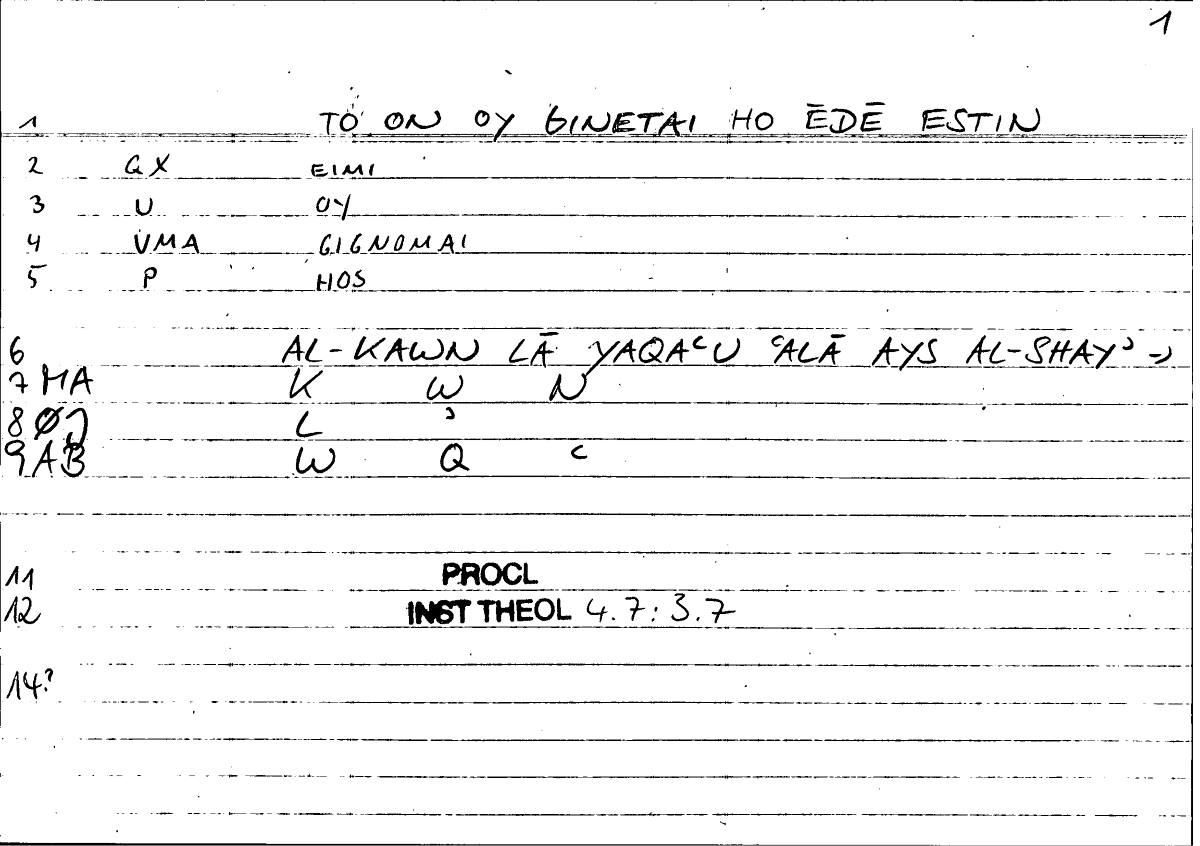 1
1 TÒ ON OY GINETAI HO ĒDĒ ESTIN
2 GX EIMI
3 U OY
4 VMA GIGNOMAI
5 P HOS
6 AL-KAWN LĀ YAQAʿU ʿALĀ AYS AL-SHAYʾ
7 MA K W N
8 L ʾ
9 AB W Q ʿ
11 PROCL
12 INST THEOL 4.7:3.7
14?